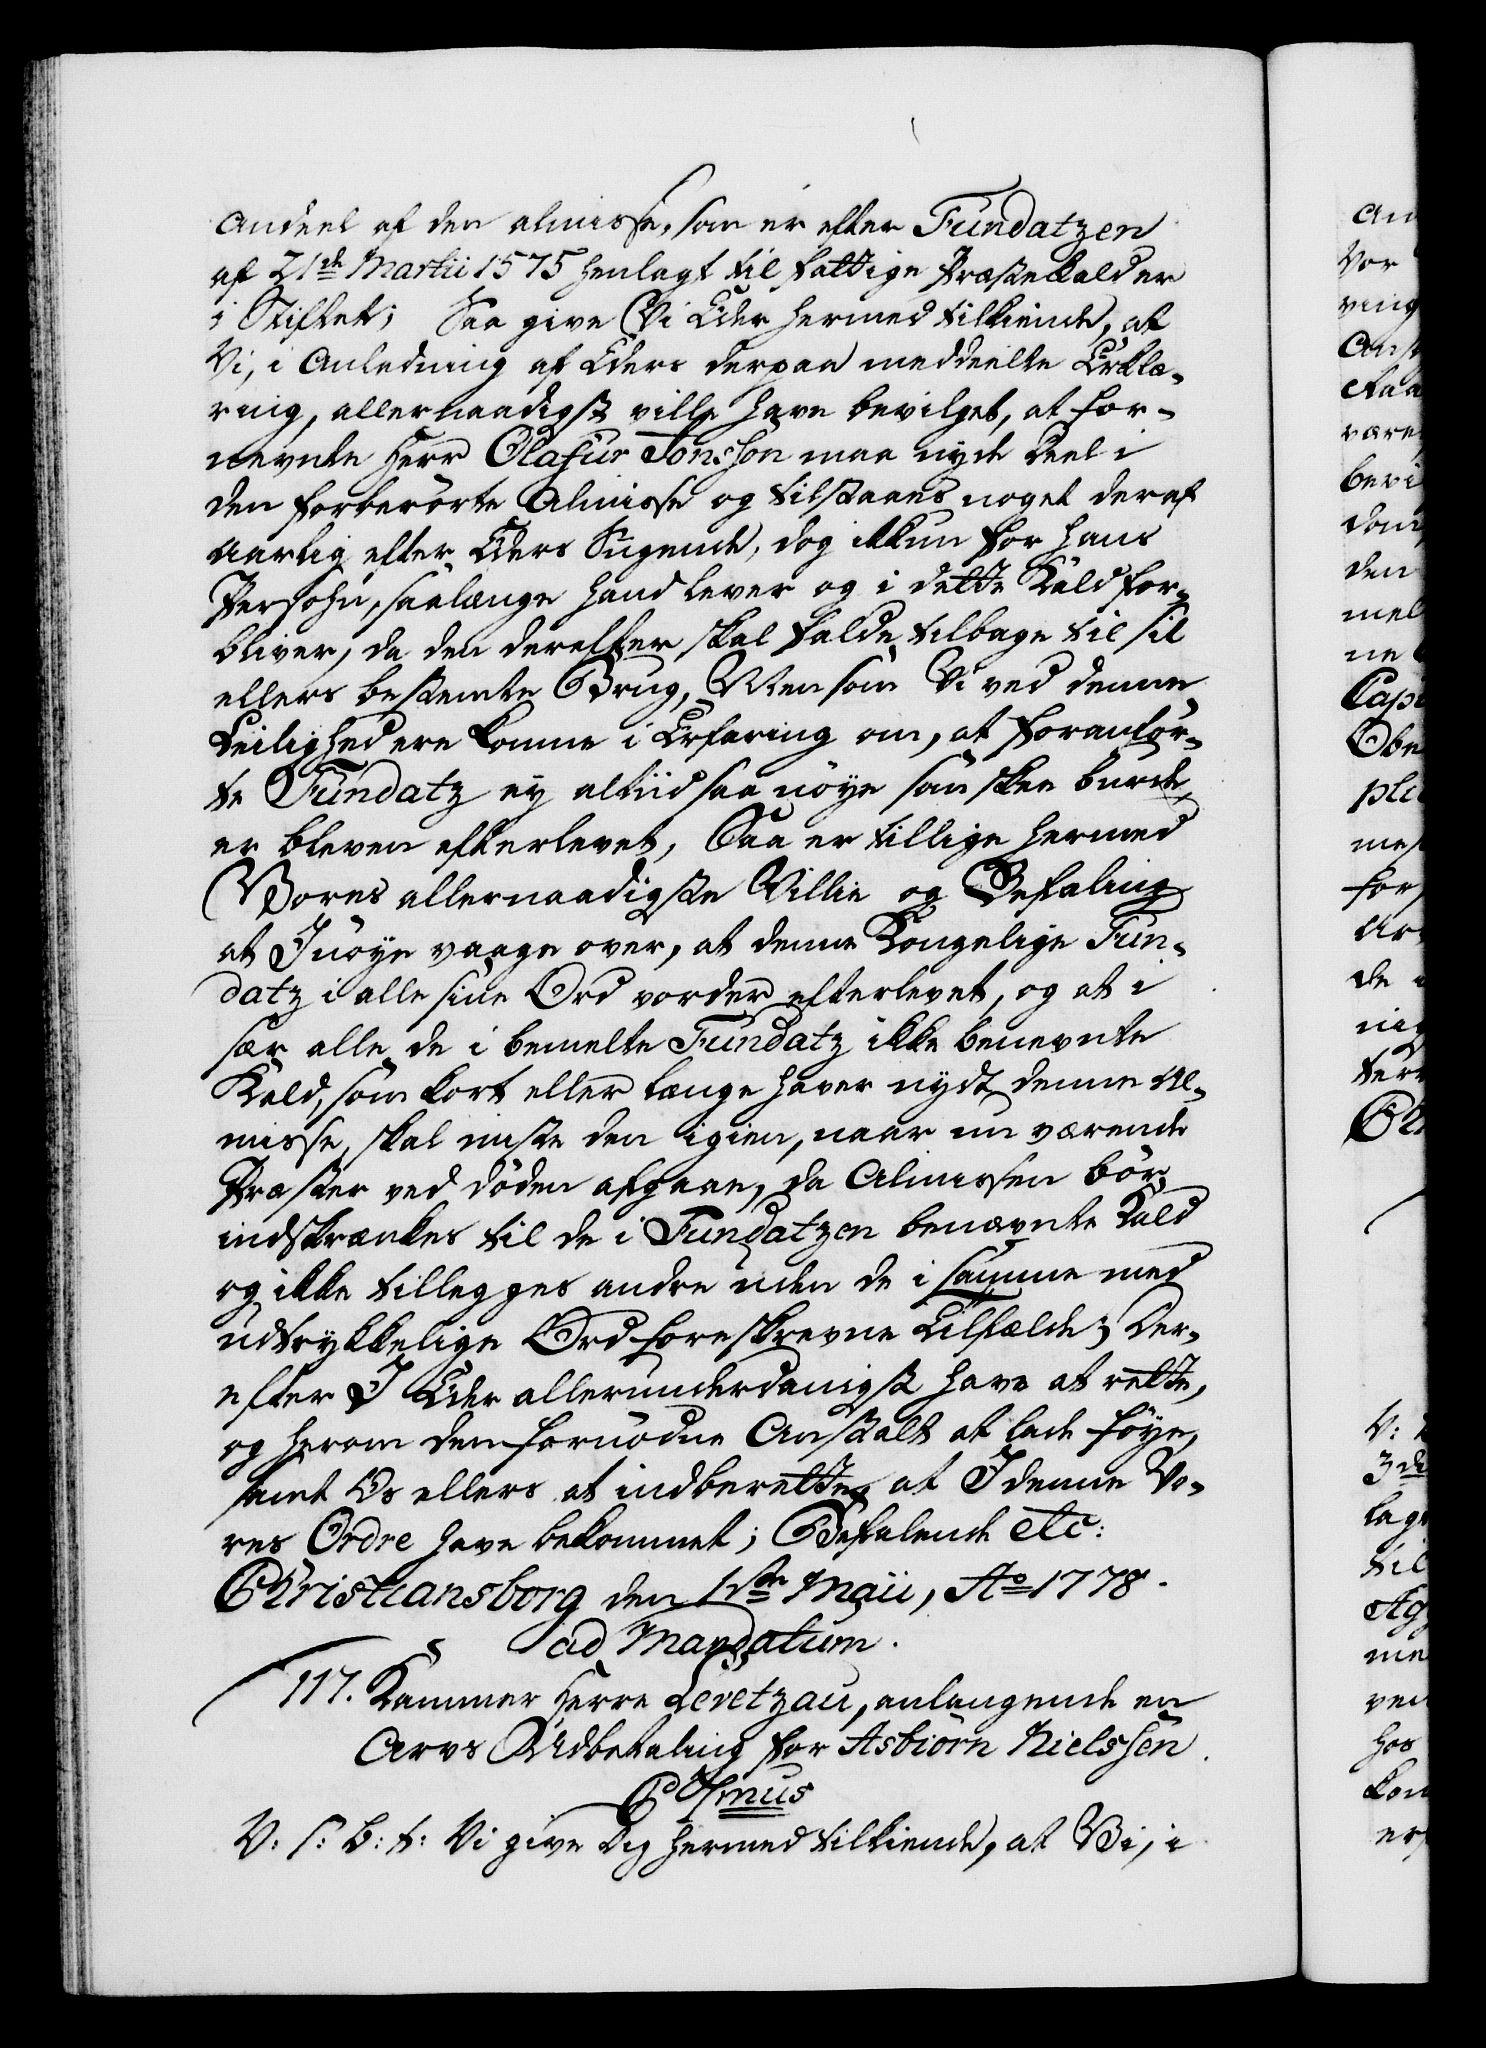 Andeel af den almisse, som er efter Fundatzen
af 21de Martii 1575 henlagt til fattige Præstekalder
i Stiftet; Saa give Vi Eder hermed tilkiende, at
Vi, i Anledning af Eders derpaa meddeelte Erklæ-
ring, allernaadigst ville have bevilget, at for-
nevnte Herr Olafur Jonsson maa nyde Deel i
den forberørte Almisse og tilstaaes noget deraf
aarlig efter Eders Tÿgende, dog ikkun for hans
Persohn, saalænge hand lever og i dette Kald for-
bliver, da den derefter skal falde tilbage til sit
ellers bestemte Brug, Men som Vi ved denne
Leilighed ere komne i Erfaring om, at foranför-
te Fundatz ey altiid saa nöye som skee burde,
er bleven efterlevet, Saa er tillige hermed
Vores allernaadigste Villie og Befaling
at I nöye vaage over, at denne Kongelige Fun-
datz i alle sine Ord vorder efterlevet, og at i
sær alle de i bemelte Fundatz ikke benevnte
Kald, som kort eller længe haver nydt denne Al-
misse, skal miste den igien, naar nu værende
Præster ved döden afgaae, da Almissen bör
indskrænkes til de i Fundatzen benævnte Kald
og ikke tillegges andre uden de i samme med
udtrykkelige Ord foreskrevne Tilfælde; Der-
efter I Eder allerunderdanigst have at rette,
og herom den fornödne Anstalt at lade föye,
samt Os ellers at indberette, at I denne Vo-
res Ordre have bekommet; Befalende etc:
Christiansborg den 1ste Maii, Ao 1778.
ad Mandatum.
117. Kammer Herre Levetzau, anlangende en
Arvs Udbetaling for Asbiörn Nielssen.
C 7mus
V: s: b: t: Vi give Dig hermed tilkiende, at Vi, i